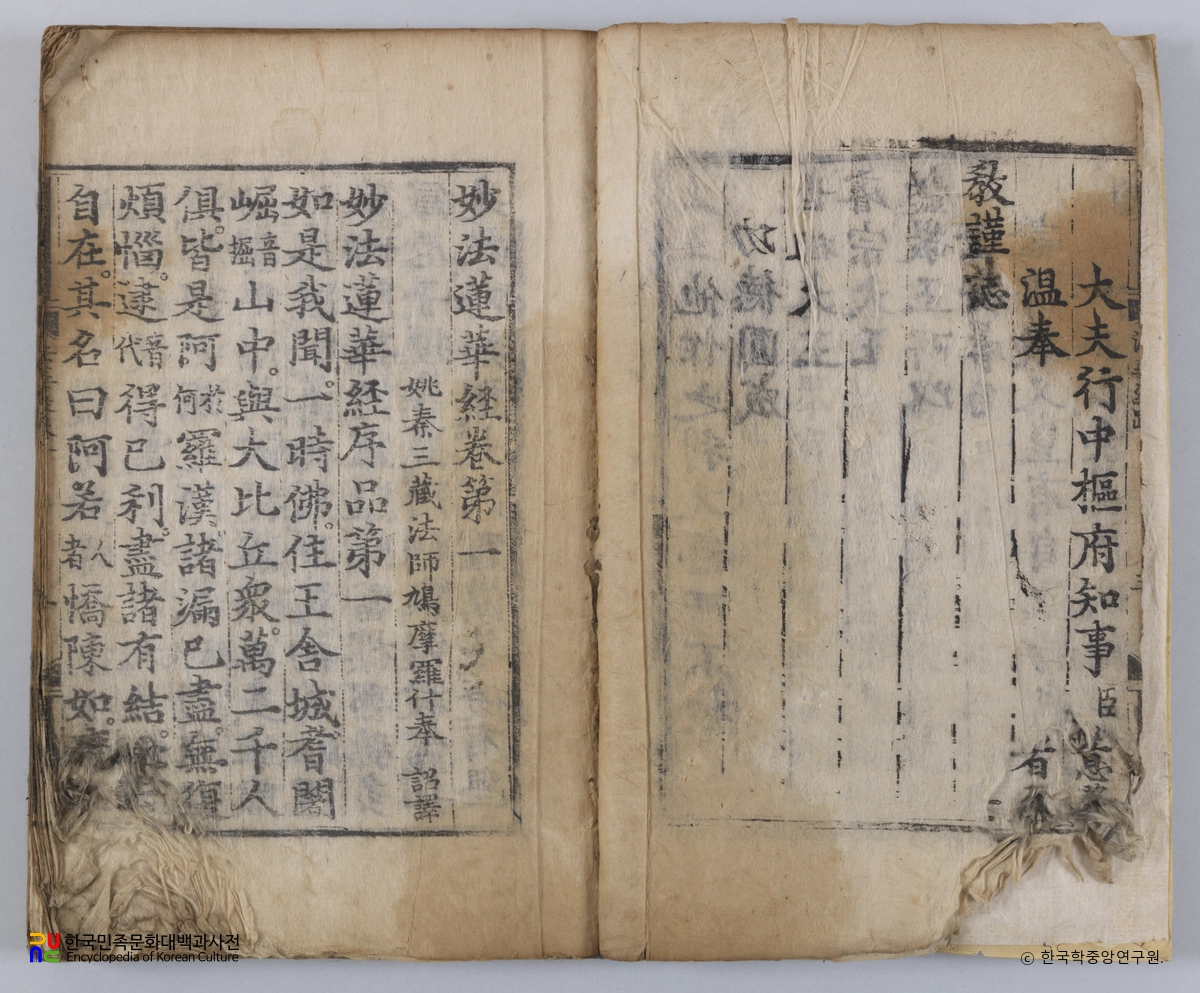 大夫行中樞府知事臣
温奉
教謹誌
妙法蓮華経卷第一
姚秦三藏法師鳩摩羅什奉 詔譯
妙法蓮華経序品第一
如是我聞。一時佛。住王舎城耆闍
崛音掘山中。與大比丘衆。萬二千人
俱。皆是阿於何羅漢諸漏已盡。無復
煩惱。逮音代得已利。盡諸有結。
自在。其名曰阿若人者憍陳如。
한국민족문화대백과사전
Encyclopedia of Korean Culture
© 한국학중앙연구원.